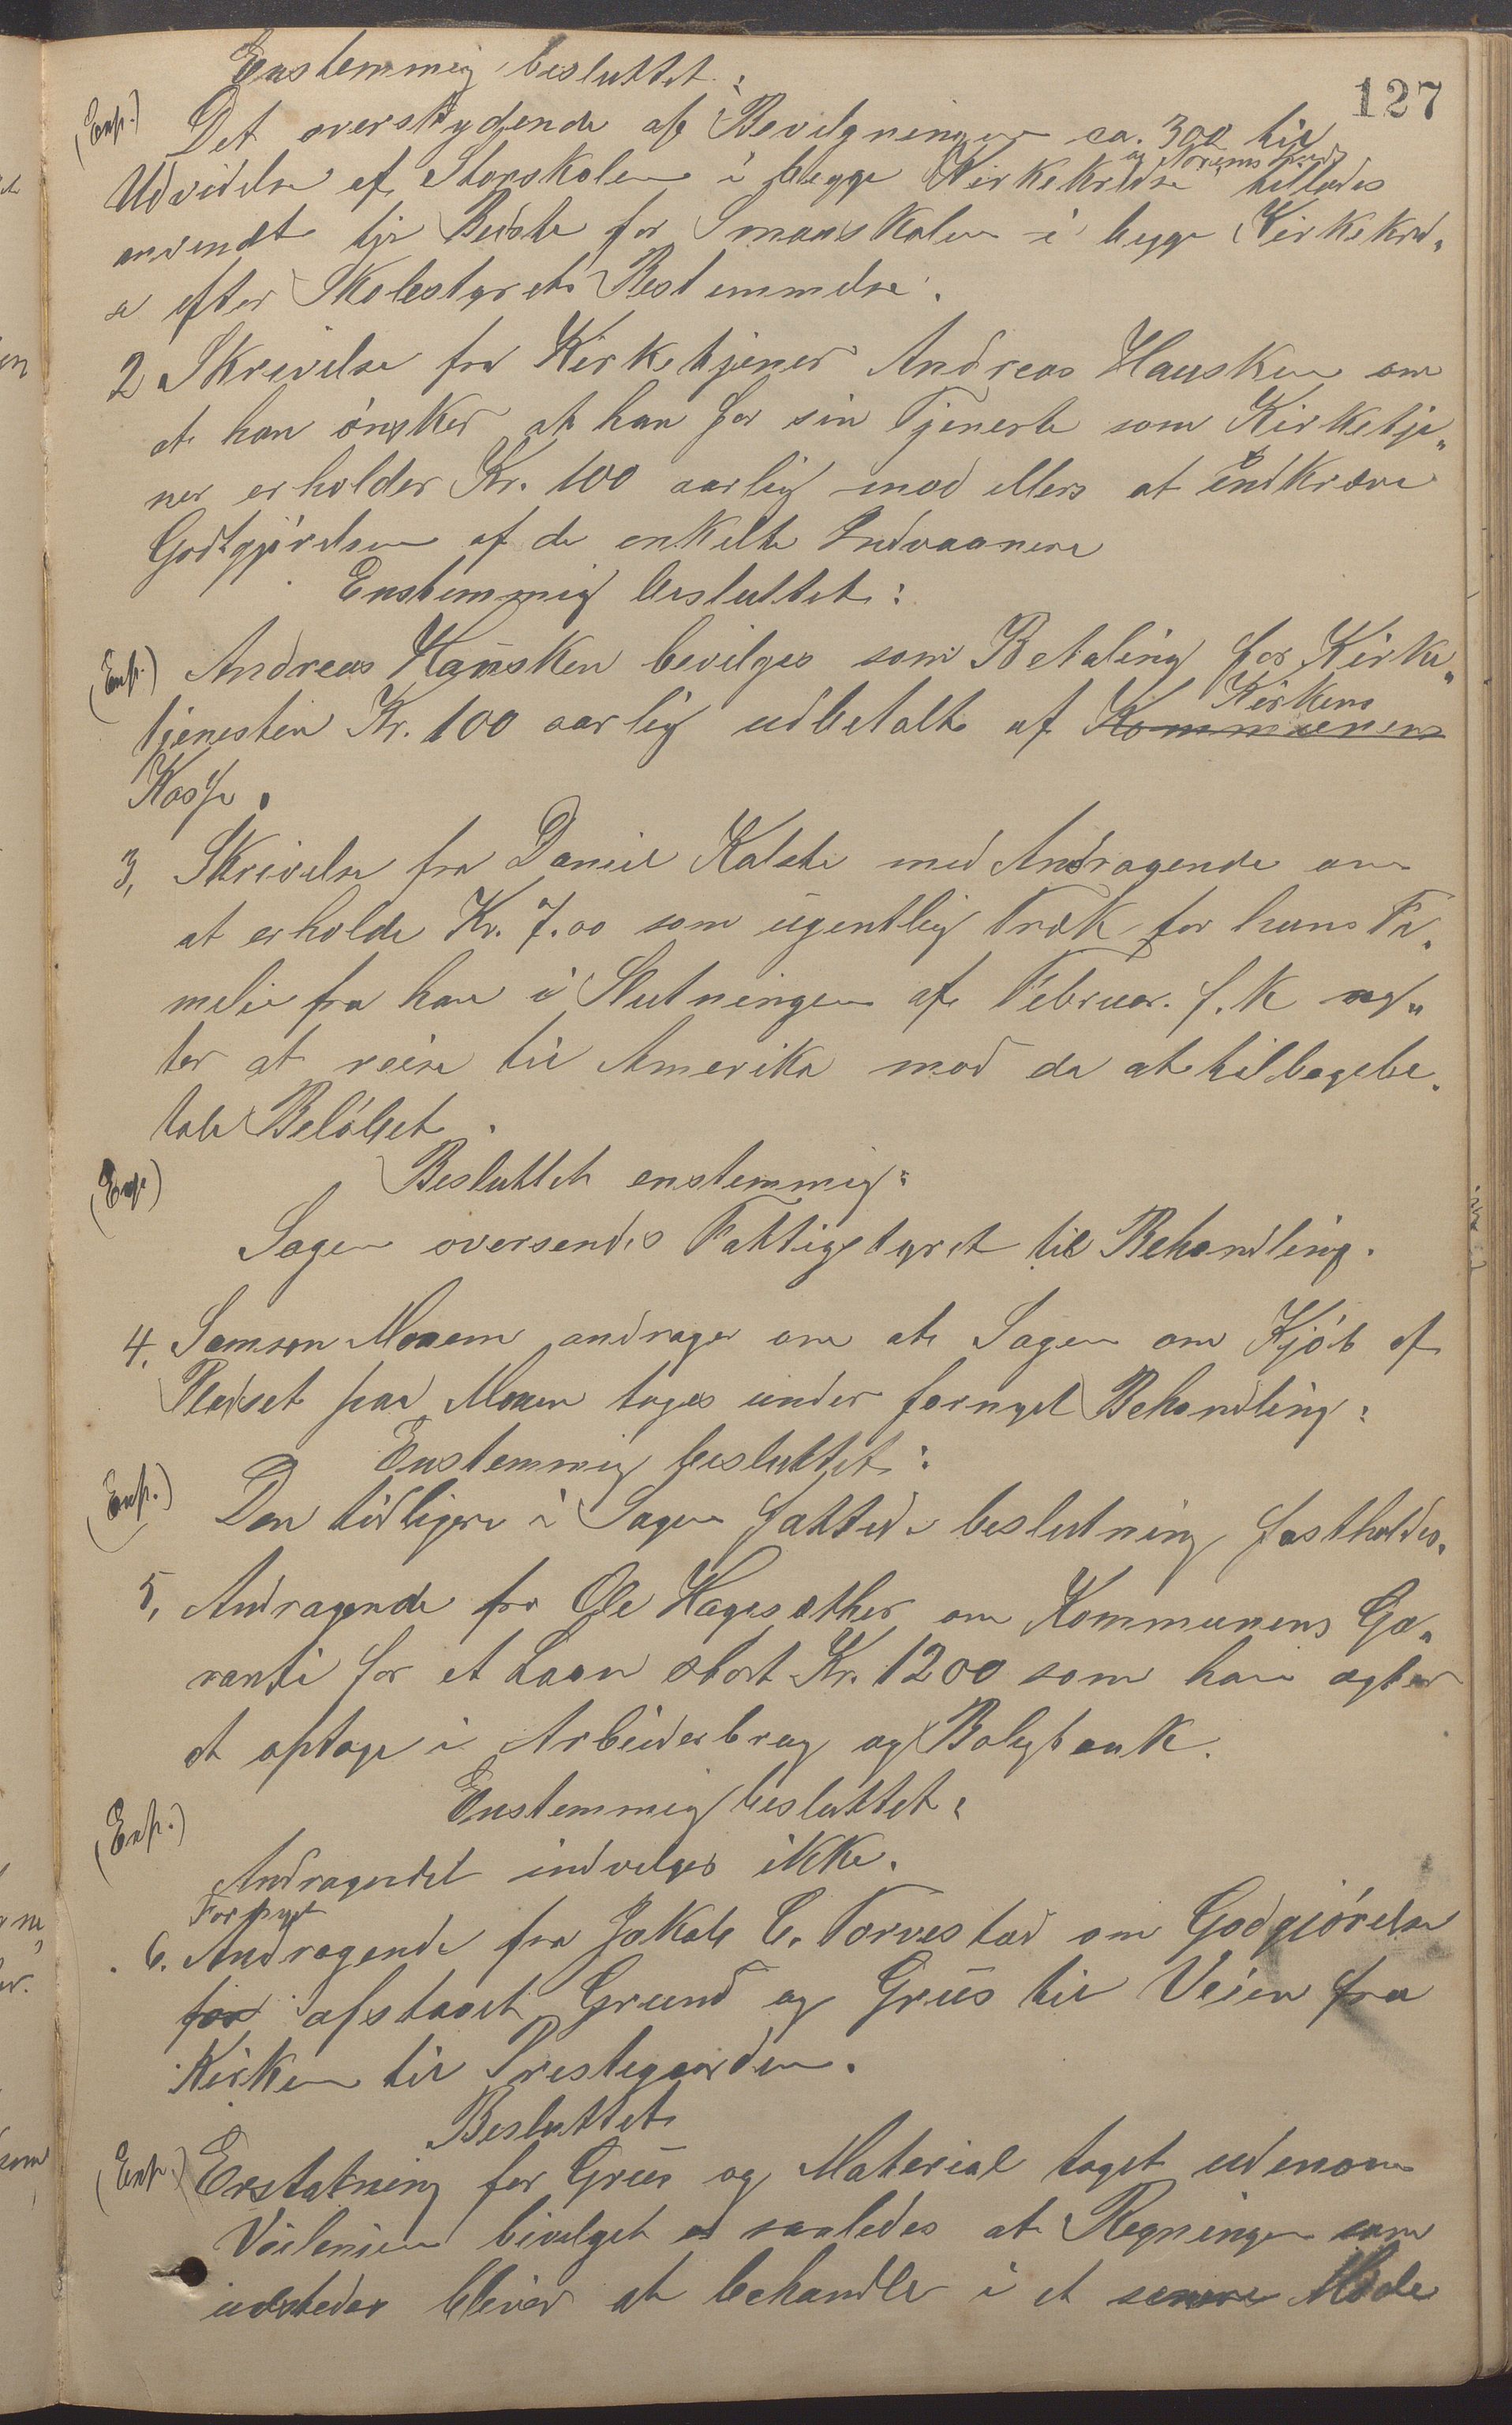 127
Enstemmig besluttet:
(Exp.) Det overskydende af Bevilgningen ca. 300 til
Udvidelse af Storskolen i begge Kirkekredse tillades
anvendt til Bedste for Smaaskolen i begge Kirkekred„
se efter Skolestyrets Bestemmelse.
2 Skrivelse fra Kirketjener Andreas Hausken om
at han ønsker at han for sin Tjeneste som Kirketje„
ner erholder Kr. 100 aarlig mod ellers at indkræve
Godtgjørelsen af de enkelte Indvaanere
Enstemmig besluttet:
(Exp.) Andreas Hausken bevilges som Betaling for Kirke„
Kirkens
tjenesten Kr. 100 aarlig udbetalt af Kommunens
Kasse.
3, Skrivelse fra Daniel Kalstø med Andragende om
at erholde Kr. 7.00 som ugentlig Træk for hans Fa„
melie fra han i Slutningen af Februar f. K agt„
ter at reise til Amerika mod da at tilbagebe„
tale Beløbet.
(Exp) Besluttet enstemmig:
Sagen oversendes Fattigstyret til Behandling.
4. Samson Moaem andrager om at Sagen om Kjøb af
Pladset paa Moaen tages under fornyet Behandling:
Enstemmig besluttet:
(Exp.) Den tidligere i Sagen fattede beslutning fastholdes.
5, Andragende fra Ole Hagesæther om Kommunens Ga„
ranti for et Laan stort Kr. 1200 som han agter
at optage i Arbeiderbrug og Boligbank.
Enstemmig besluttet:
(Exp.)
Andragendet indvilges ikke.
Fornyet
6. Andragende fra Jakob C. Torvestad om Godgjørelse
for afstaaet Grund og Grus til Veien fra
Kirken til Prestegaarden.
Besluttet
(Exp.) Erstatning for Grus og Material taget udenom
Veilenien bivilget saaledes at Regningen som
udsteder bliver at behandle i et senere Møde